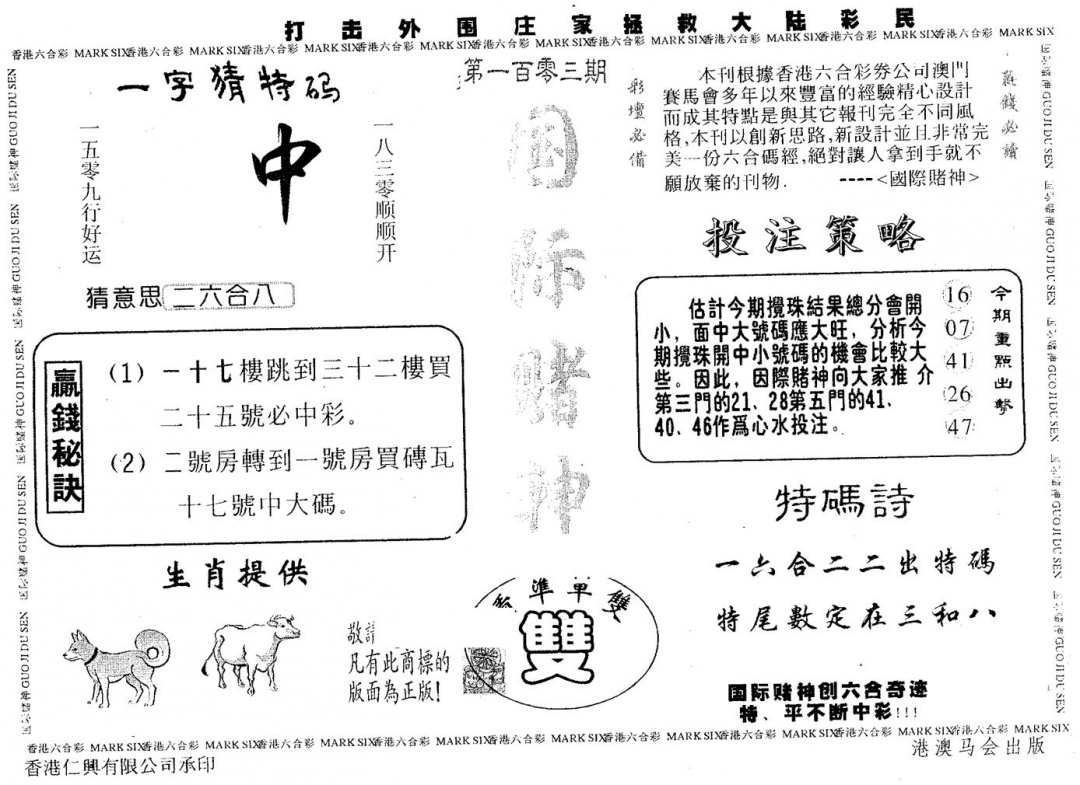 打击外围庄家拯救大陆彩民
香港六合彩 MARK SIX香港六合彩 MARK SIX香港六合彩 MARK SIX香港六合彩 MARK SIX香港六合彩 MARK SIX香港六合彩 MARK SIX香港六合彩 MARK SIX香港六合彩 MARK SIX香港六合彩 MARK SIX
一字猜特码
一五零九行好运
中
一八三零顺顺开
猜意思 二六合八
贏錢秘訣
(1) 一十七樓跳到三十二樓買
二十五號必中彩。
(2) 二號房轉到一號房買磚瓦
十七號中大碼。
生肖提供
敬請
凡有此商標的
版面為正版!
第一百零三期
国际赌神
準單雙
雙
彩壇必備
本刊根據香港六合彩券公司澳門
賽馬會多年以來豐富的經驗精心設計
而成其特點是與其它報刊完全不同風
格,本刊以創新思路,新設計並且非常完
美一份六合碼經,絕對讓人拿到手就不
願放棄的刊物. ----<國際賭神>
贏錢必讀
投注策略
估計今期攪珠結果總分會開
小，面中大號碼應大旺，分析今
期攪珠開中小號碼的機會比較大
些。因此，因際賭神向大家推 介
第三門的21、28第五門的41、
40、46作爲心水投注。
16
07
41
26
47
今期重點出擊
特碼詩
一六合二二出特碼
特尾數定在三和八
国际赌神创六合奇迹
特、平不断中彩!!!
香港六合彩 MARK SIX香港六合彩 MARK SIX香港六合彩 MARK SIX香港六合彩 MARK SIX香港六合彩 MARK SIX香港六合彩 MARK SIX香港六合彩 MARK SIX香港六合彩 MARK SIX香港六合彩 MARK SIX
香港仁興有限公司承印
港澳马会出版